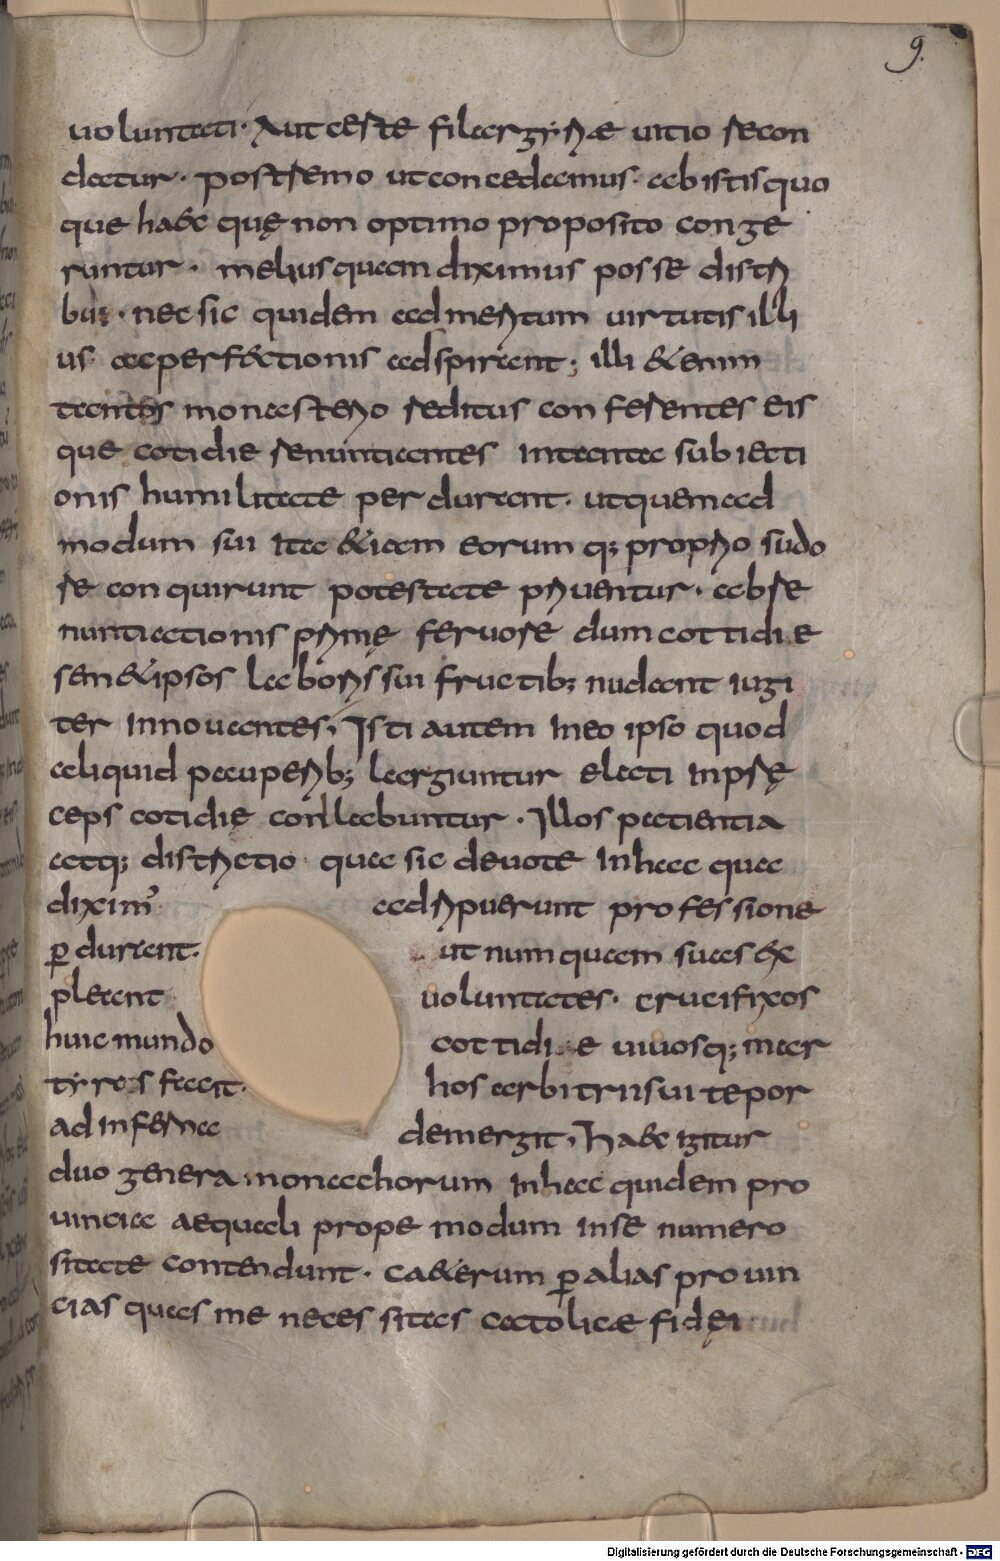 9.
uoluntati. Aut certe filargyriae uitio recon
datur. postremo ut concedamus. ab istis quo
que haec quę non optimo proposito conge
runtur. melius quam diximus posse distri
bui. nec sic quidem ad meritum uirtutis illi
us ac perfectionis adspirant; illi etenim
tantis monasterio reditus conferentes eis
que cotidie renuntiantes in tanta subiecti
onis humilitate perdurant. ut quemad
modum sui ita etiam eorum q; proprio sudo
re conquirunt potestate priuentur. ab re
nuntiationis primę feruore dum cottidie
semetipsos laboris sui fructib; nudant iugi
ter innouantes; Isti autem in eo ipso quod
aliquid pauperib; largiuntur electi in prę
ceps cotidię conlabuntur. Illos patientia
atq; districtio quae sic deuote in hac qua
diximꝰ adripuerunt professione
ꝑdurant. ut numquam suas ex
pleant uoluntates. crucifixos
huic mundo cottidie uiuosq; mar
tyres facit. hos arbitrii sui tepor
ad inferna demergit; Haec igitur
duo genera monachorum in hac quidem pro
uincia aequali prope modum in se numero
sitate contendunt. caeterum ꝑ alias prouin
cias quas me necessitas catolicae fidęi
Digitalisierung gefördert durch die Deutsche Forschungsgemeinschaft - DFG